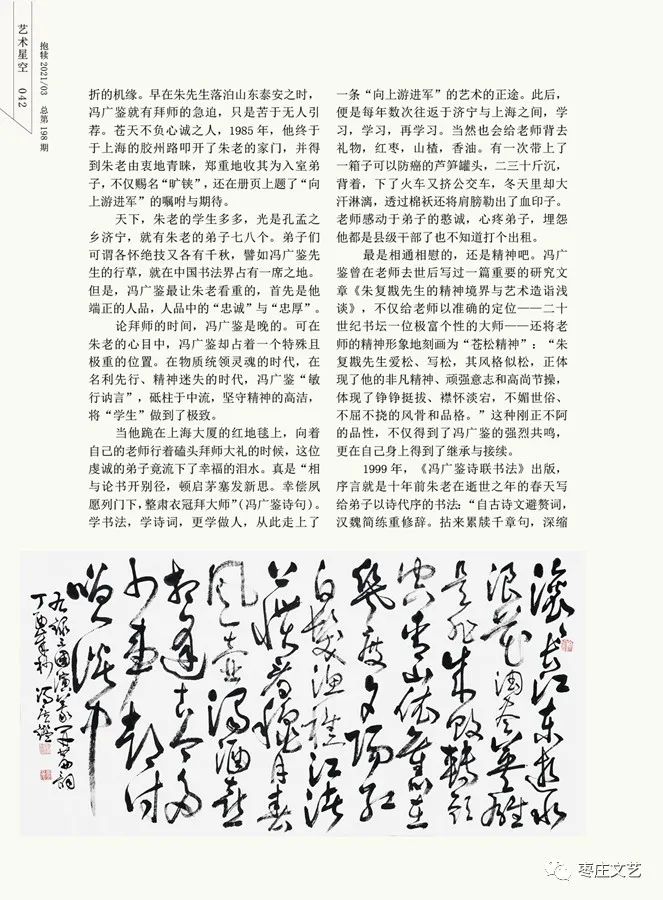 艺术星空 042
抱犊 2021/03 总第198期
折的机缘。早在朱先生落泊山东泰安之时，
冯广鉴就有拜师的急迫，只是苦于无人引
荐。苍天不负心诚之人，1985 年，他终于
于上海的胶州路叩开了朱老的家门，并得
到朱老由衷地青睐，郑重地收其为入室弟
子，不仅赐名“旷铗”，还在册页上题了“向
上游进军”的嘱咐与期待。
天下，朱老的学生多多，光是孔孟之
乡济宁，就有朱老的弟子七八个。弟子们
可谓各怀绝技又各有千秋，譬如冯广鉴先
生的行草，就在中国书法界占有一席之地。
但是，冯广鉴最让朱老看重的，首先是他
端正的人品，人品中的“忠诚”与“忠厚”。
论拜师的时间，冯广鉴是晚的。可在
朱老的心目中，冯广鉴却占着一个特殊且
极重的位置。在物质统领灵魂的时代，在
名利先行、精神迷失的时代，冯广鉴“敏
行讷言”，砥柱于中流，坚守精神的高洁，
将“学生”做到了极致。
当他跪在上海大厦的红地毯上，向着
自己的老师行着磕头拜师大礼的时候，这位
虔诚的弟子竟流下了幸福的泪水。真是“相
与论书开别径，顿启茅塞发新思。幸偿夙
愿列门下，整肃衣冠拜大师”（冯广鉴诗句）。
学书法，学诗词，更学做人，从此走上了
一条“向上游进军”的艺术的正途。此后，
便是每年数次往返于济宁与上海之间，学
习，学习，再学习。当然也会给老师背去
礼物，红枣，山楂，香油。有一次带上了
一箱子可以防癌的芦笋罐头，二三十斤沉，
背着，下了火车又挤公交车，冬天里却大
汗淋漓，透过棉袄还将肩膀勒出了血印子。
老师感动于弟子的憨诚，心疼弟子，埋怨
他都是县级干部了也不知道打个出租。
最是相通相慰的，还是精神吧。冯广
鉴曾在老师去世后写过一篇重要的研究文
章《朱复戡先生的精神境界与艺术造诣浅
谈》，不仅给老师以准确的定位——二十
世纪书坛一位极富个性的大师——还将老
师的精神形象地刻画为“苍松精神”：“朱
复戡先生爱松、写松，其风格似松，正体
现了他的非凡精神、顽强意志和高尚节操，
体现了铮铮挺拔、襟怀淡宕，不媚世俗、
不屈不挠的风骨和品格。”这种刚正不阿
的品性，不仅得到了冯广鉴的强烈共鸣，
更在自己身上得到了继承与接续。
1999 年，《冯广鉴诗联书法》出版，
序言就是十年前朱老在逝世之年的春天写
给弟子以诗代序的书法：“自古诗文避赘词，
汉魏简练重修辞。拈来累牍千章句，深缩
滚滚长江东逝水
浪花淘尽英雄
是非成败转头
空青山依旧在
几度夕阳红
白发渔樵江渚
上惯看秋月春
风一壶浊酒喜
相逢古今多
少事都付
笑谈中
右录三国演义开篇词
丁酉年秋 冯广鉴
枣庄文艺